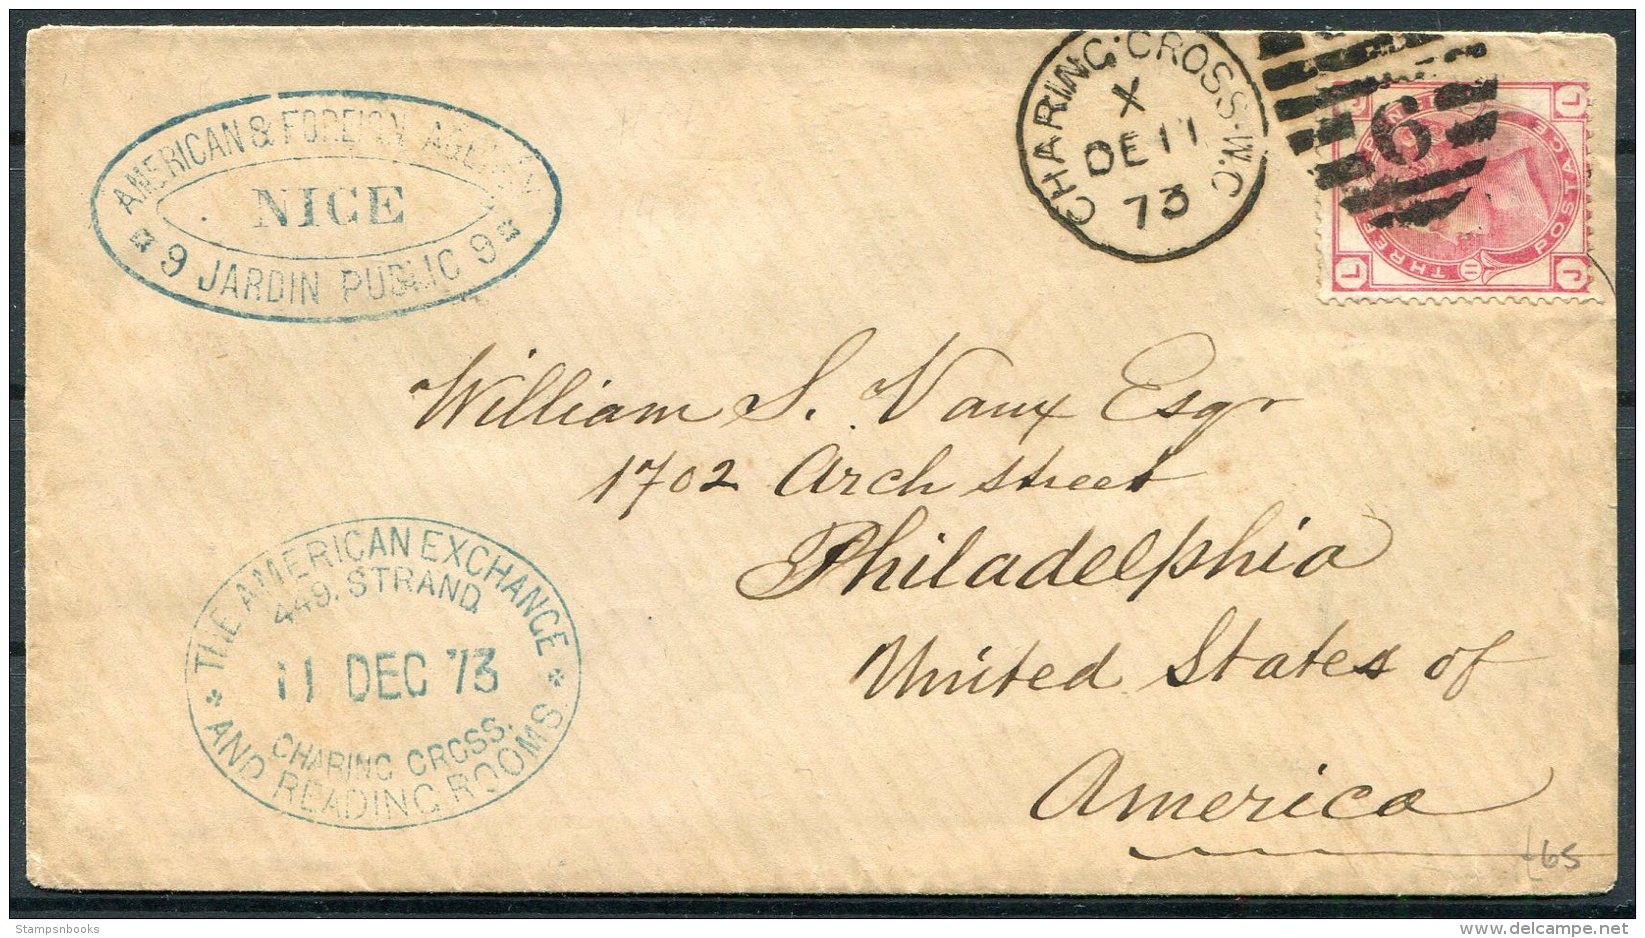 AMERICAN & FOREIGN AGENCY
NICE
9 JARDIN PUBLIC 9
CHARING·CROSS·W.C
X
DE 11
73
6
L J
THREE PENCE
POSTAGE
11
J L
William S. Vaux Esqr
1702 Arch street
Philadelphia
United States of
America
THE AMERICAN EXCHANGE
449. STRAND
11 DEC '73
CHARING CROSS.
AND READING ROOMS
£65
Stampsnbooks
delcampe.net